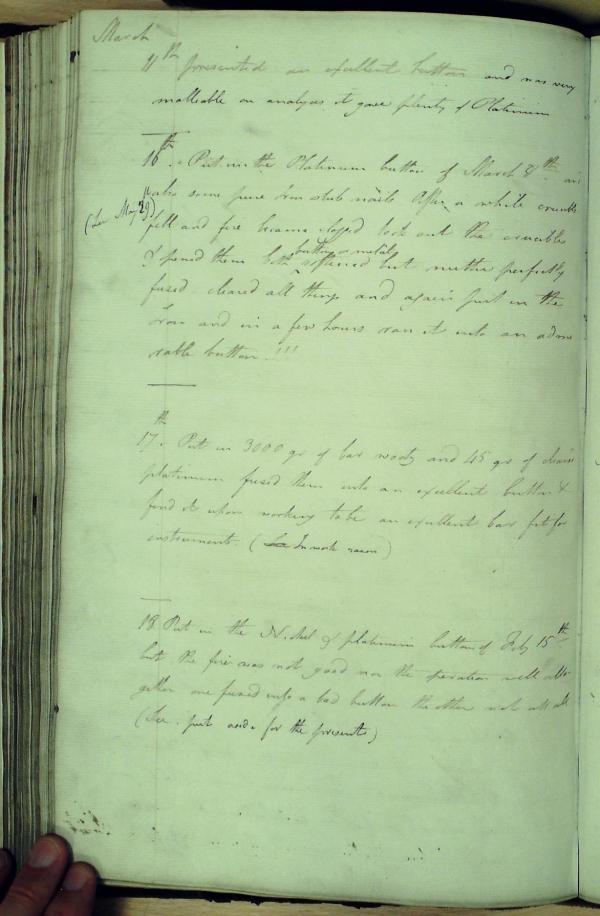 March
11th presented an excellent button and was very
malleable on analyses it gave plenty of Platinum
16th. Put in the Platinum button of March 8th and
also some pure Iron stub nails After a while crucible
(See May 29)
fell and fire became clogged took out the crucibles
& opened them both
button or metals
softened but neither perfectly
fused cleared all things and again put in the
Iron and in a few hours ran it into an admi
rable button !!!
17th. Put in 3000 gr of bar wootz and 45 gr of
platinum fused them into an excellent button &
find it upon working to be an excellent bar fit for
instruments (In work room)
18 Put in the Nickel & platinum button of Feby 15th
but the fire was not good nor the operation well alto
gether one fused into a bad button the other not at all
(See. put aside for the present)